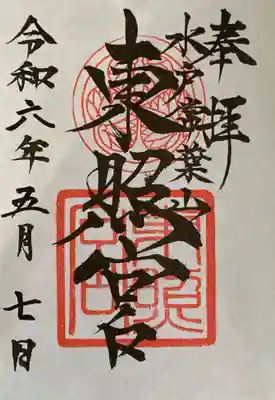 奉拝
水戸常葉山
東照宮
令和六年五月七日
東照宮印